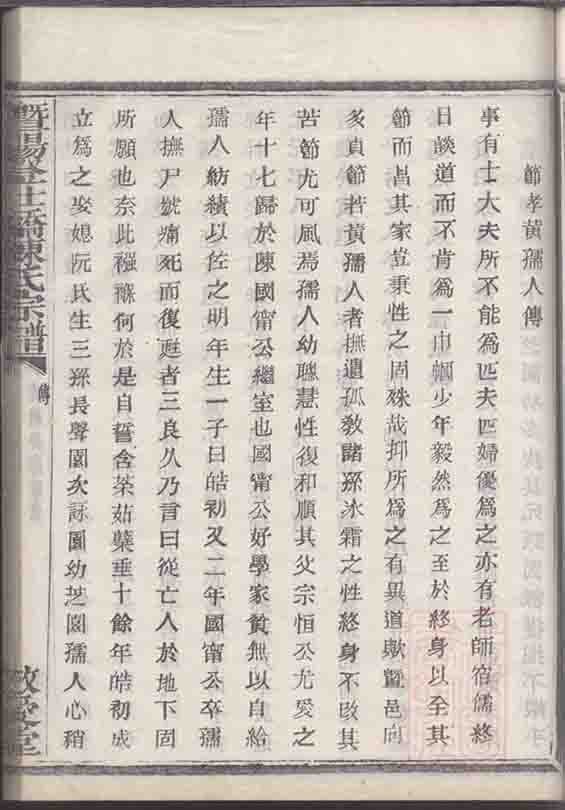 節孝黃孺人傳
事有士大夫所不能為匹夫匹婦優為之亦有老師宿儒終
日談道而不肯為一巾幗少年毅然為之至於終身以全其
節而昌其家豈秉性之固殊哉抑所為之有異道歟暨邑向
多貞節若黃孺人者撫遺孤教諸孫冰霜之性終身不改其
苦節尤可風焉孺人幼聰慧性復和順其父宗恒公尤愛之
年十七歸於陳國甯公繼室也國甯公好學家貧無以自給
孺人紡績以佐之明年生一子曰皓初又二年國甯公卒孺
人撫尸號痛死而復甦者三良久乃言曰從亡人於地下固
所願也奈此襁褓何於是自誓含荼茹蘗垂十餘年皓初成
立為之娶媳阮氏生三孫長聲園次詠園幼芝園孺人心稍
暨陽全仕橋陳氏宗譜
傳
敬愛堂